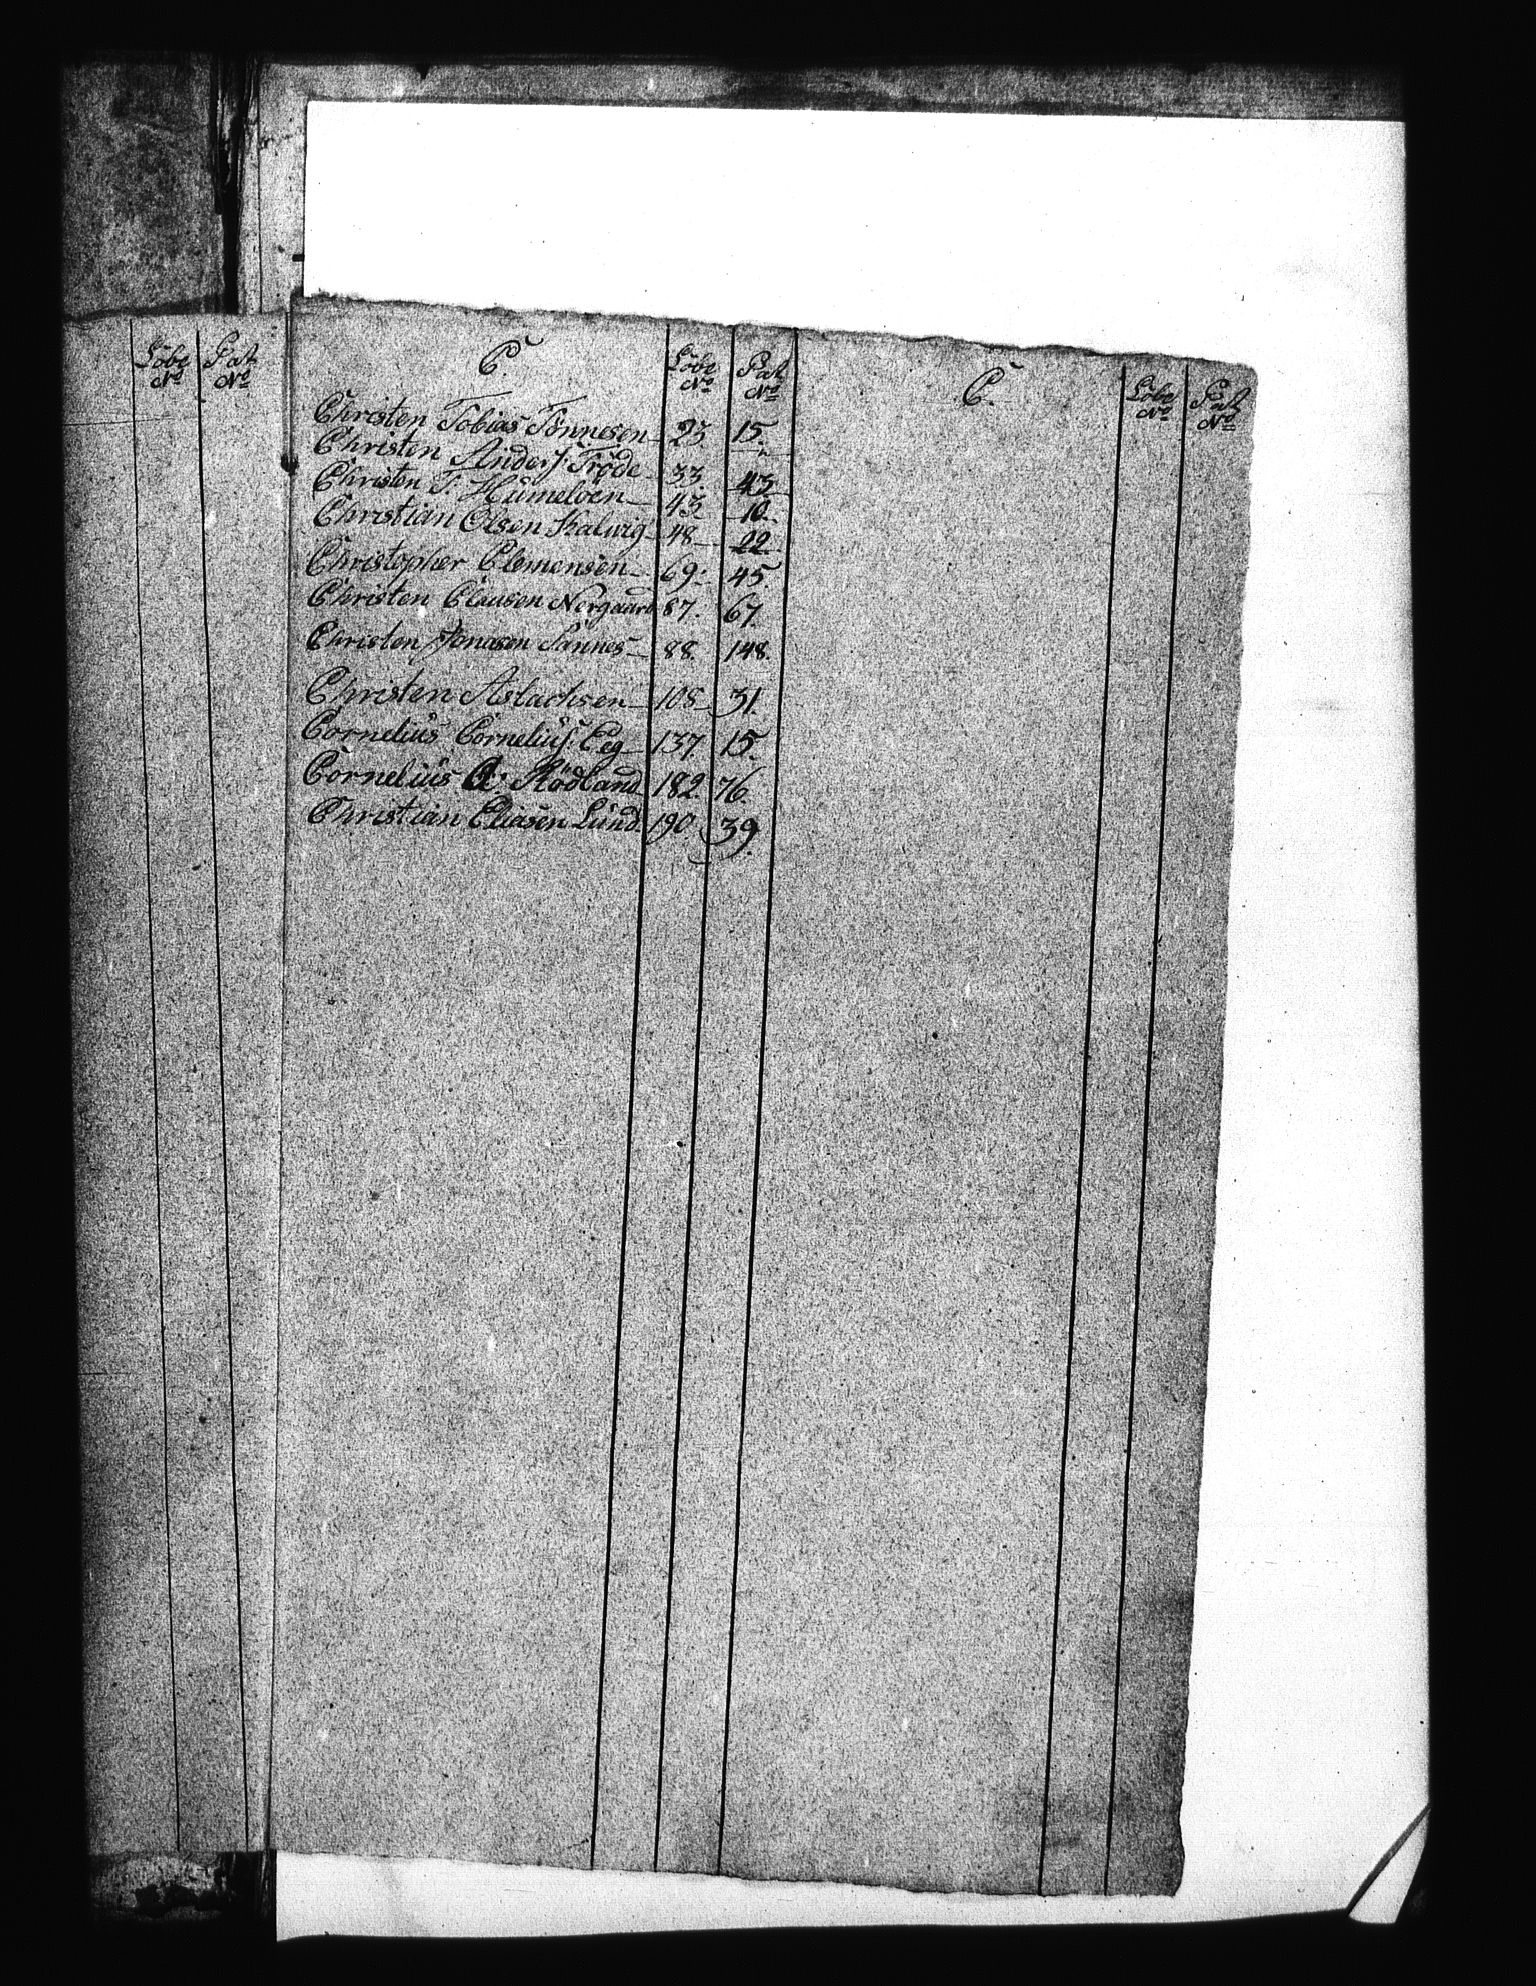 Löbe Pat
No No
C. Löbe No Pat No
Christen Tobias Tönnesen 23. 15.
Christen Anders. Tröde 33. 43
Christen T. Humeloen 43 10.
Christian Olsen Kalvig 48 22
Christopher Clemensen 69. 45.
Christen Clausen Nergaard 87. 67.
Christen Jonasen Sannes 88. 148.
Christen Aslachsen 108 31.
Cornelius Cornelius. Eeg 137. 15.
Cornelius A: Rödland 182. 76.
Christian Eliasen Lund. 190 39.
C. Löbe No Pat No